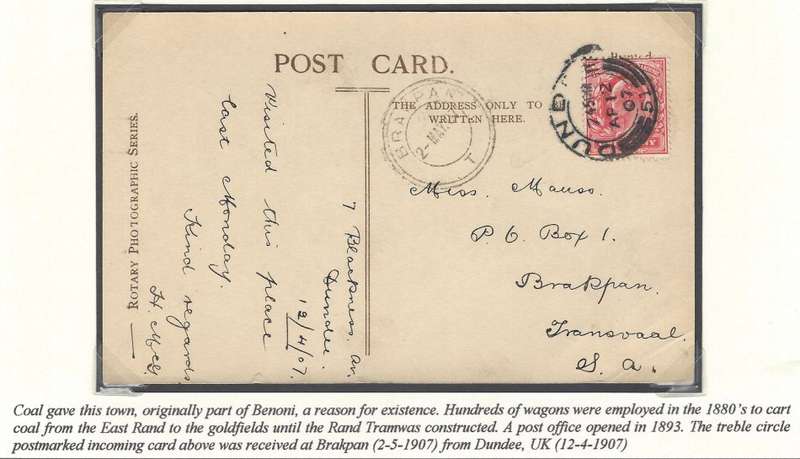 POST CARD.
THE ADDRESS ONLY TO BE
WRITTEN HERE.
BRAKPAN
2-MAY.07
T
DUNDEE
7.45 PM
AP 12
07
ROTARY PHOTOGRAPHIC SERIES.
7 Blackness. Av.
Dundee.
12/4/07.
Visited this place
last Monday.
Kind regards
H. McG
Miss. Mauss.
P. O. Box 1.
Brakpan.
Transvaal.
S. A.
Coal gave this town, originally part of Benoni, a reason for existence. Hundreds of wagons were employed in the 1880's to cart
coal from the East Rand to the goldfields until the Rand Tramwas constructed. A post office opened in 1893. The treble circle
postmarked incoming card above was received at Brakpan (2-5-1907) from Dundee, UK (12-4-1907)